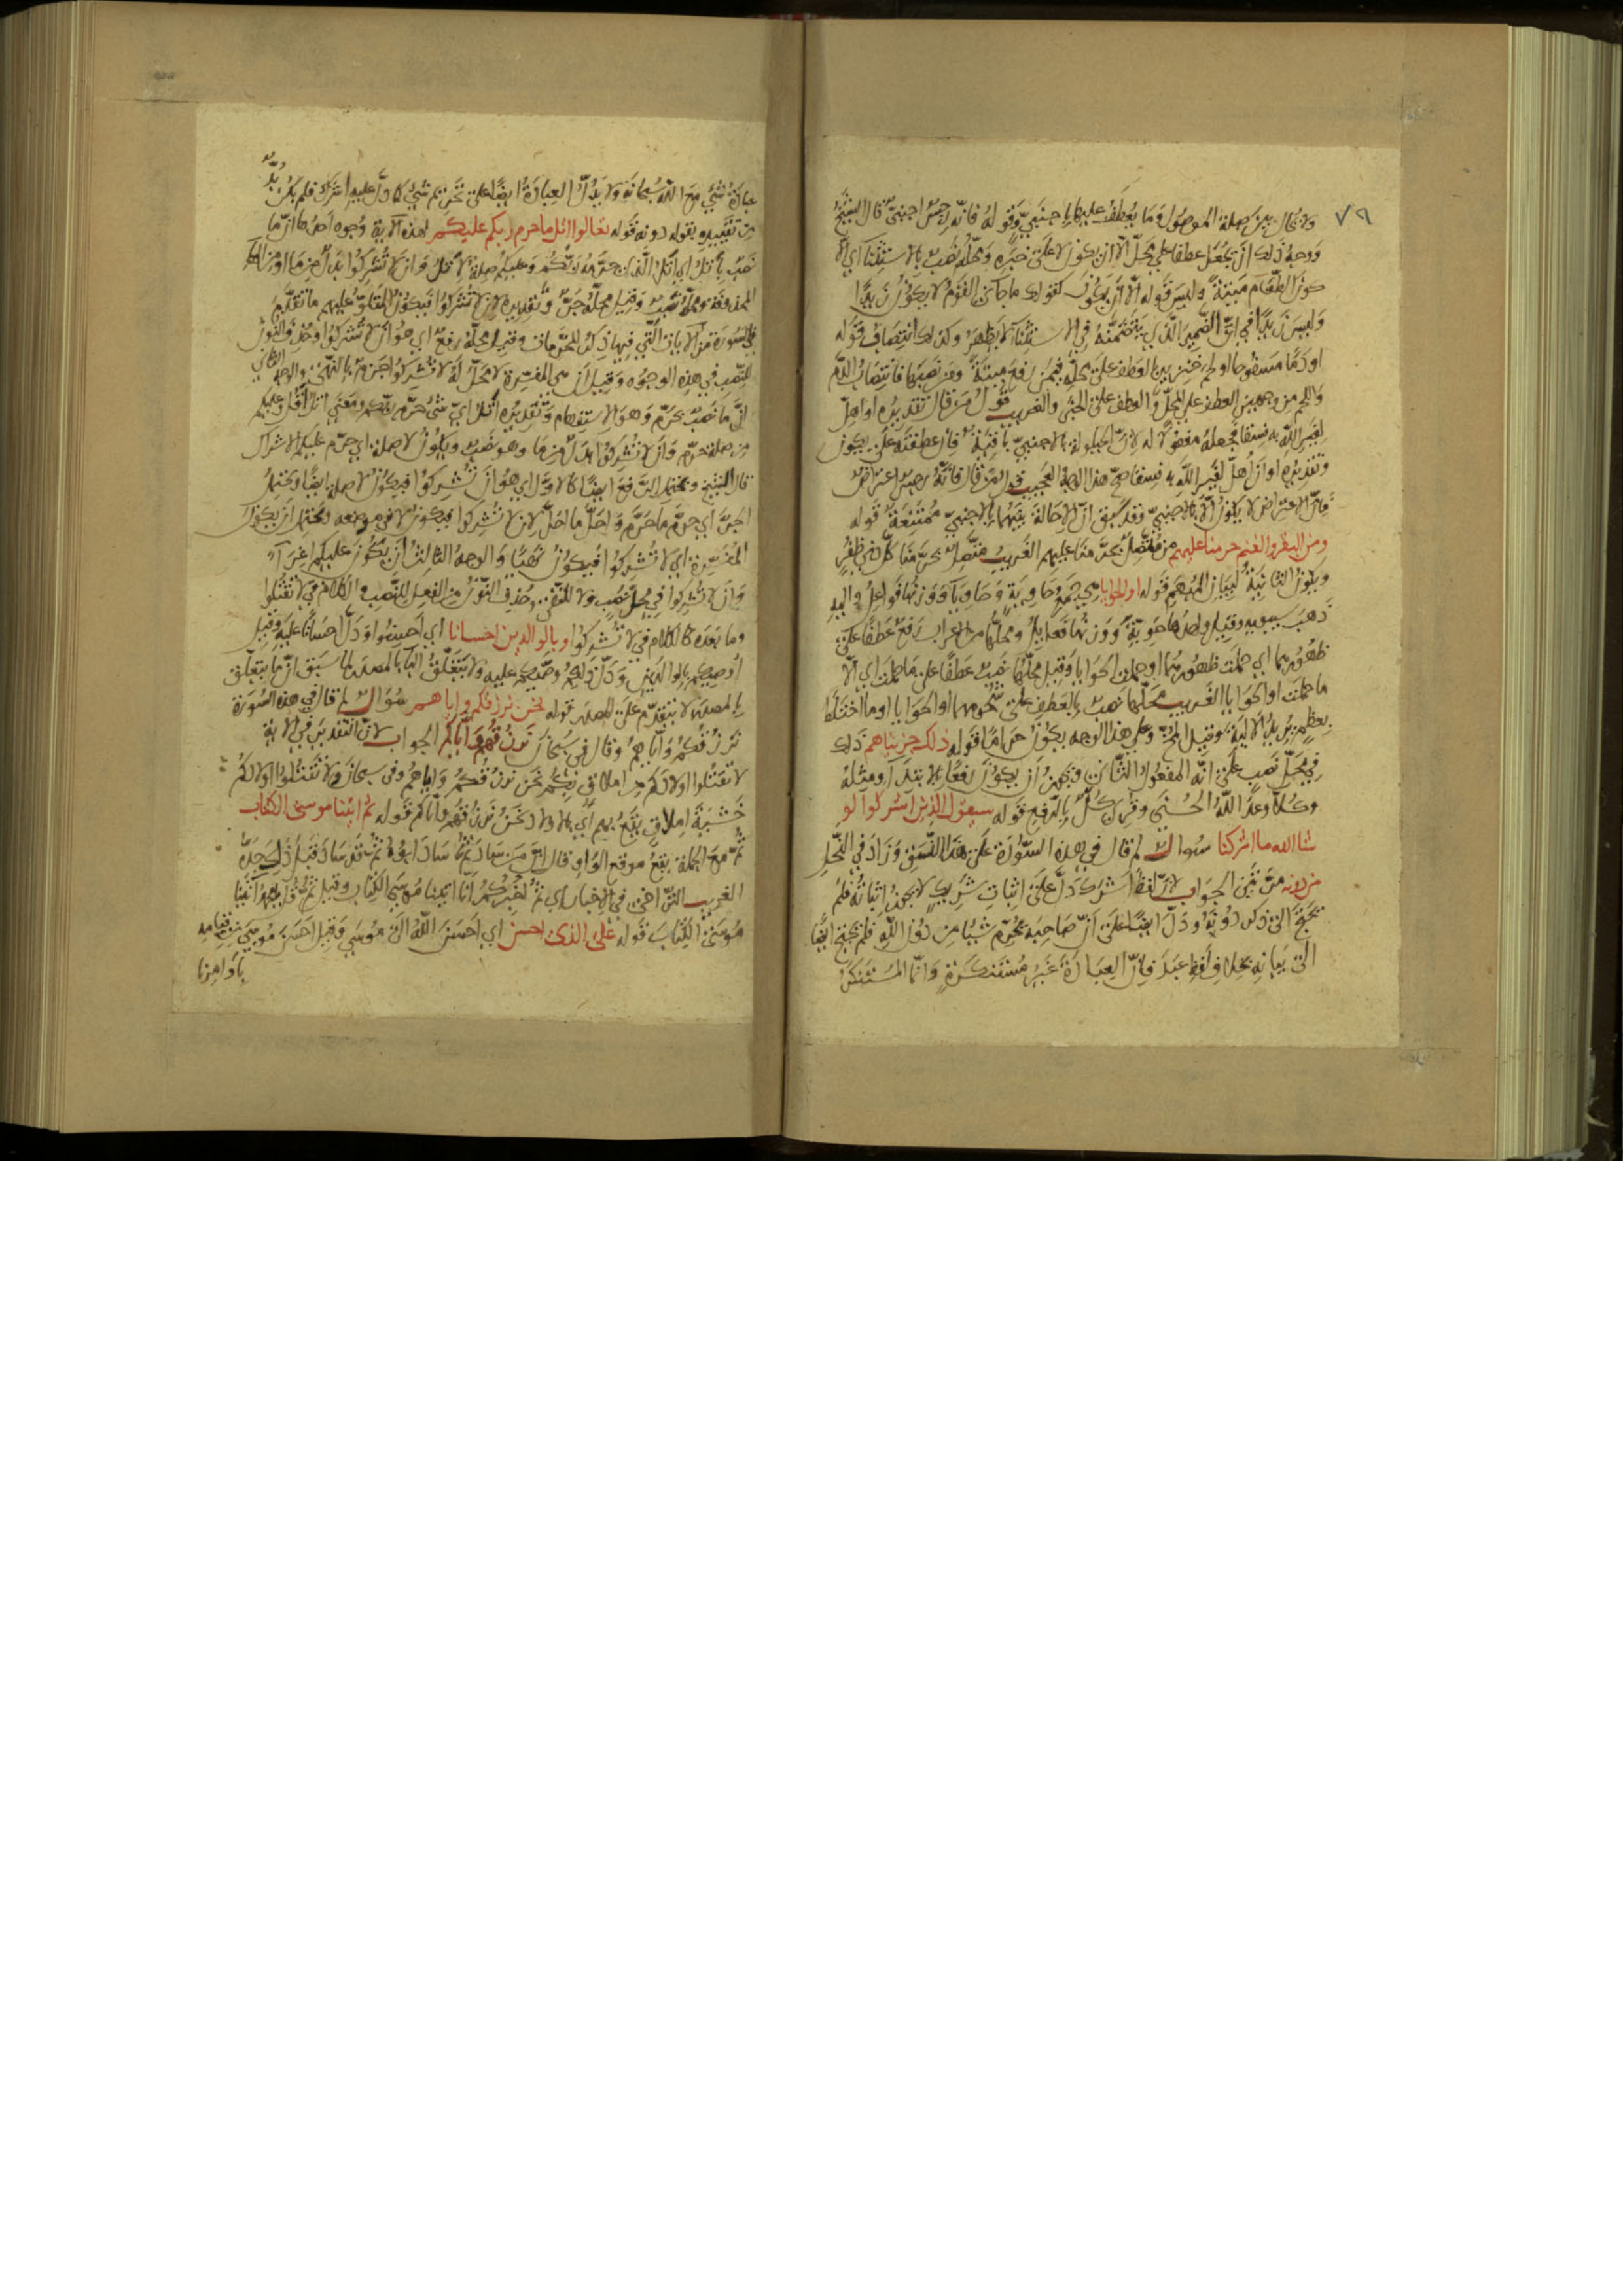 ٧٩
ولا يحال بين صلة الموصول وما يعطف عليها باجنبي وقوله فانه رجس اجنبي قال الشيخ
ووجه ذلك ان يجعل عطفا على محل الا ان يكون لا على خبره ومحله نصب بالاستثناء اي الا
كون الطعام ميتة وليس قوله الا ان يكون كقولك ما جاءني القوم لا يكون زيدا
وليس زيدا في ان الضمير الذي يتضمنه في الاستثناء لا يظهر وكذلك انتصاب قوله
او دما مسفوحا او لحم خنزير بالعطف على محله فيمن رفع ميتة ومن نصبها فانتصاب الدم
واللحم من وجهين العطف على المحل والعطف على الخبر والغريب قول من قال تقديره او اهل
لغير الله به فسقا فجعله مفعولا له لان الحيلولة بالاجنبي باقية فان عطفته على يكون
وتقديره او ان اهل لغير الله به فسقا صح هذا الوجه العجيب قول من قال فانه رجس اعتراض
فان الاعتراض لا يكون الا بالاجنبي وقد سبق ان الاحالة بينهما بالاجنبي ممتنعة قوله
ومن البقر والغنم حرمنا عليهم من متصل بحرمنا عليهم الغريب متصل بحرمنا كل ذي ظفر
ويكون الثانية لبيان المبهم قوله او الحوايا هي جمع حاوية وحاوياء ووزنها فواعل واليه
ذهب سيبويه وقيل واحدها حوية ووزنها فعايل ومحلها من الاعراب رفع عطفا على
ظهورهما اي حملت ظهورهما او حملت الحوايا وقيل محلها نصب عطفا على ما حملت اي الا
ما حملت او الحوايا الغريب محلها نصب بالعطف على شحومهما او الحوايا او ما اختلط
بعظم يريد الالية وقيل المخ وعلى هذا الوجه يكون حراما قوله ذلك جزيناهم ذلك
في محل نصب على انه المفعول الثاني ويجوز ان يكون رفعا بالابتداء ومثله
وكلا وعد الله الحسنى وقرئ كل بالرفع قوله سيقول الذين اشركوا لو
شا الله ما اشركنا سوال لم قال في هذه السورة على هذا النسق وزاد في النحل
من دونه مرتين الجواب لان لفظ اشرك دل على اثبات شريك لا يجوز اثباته فلم
يحتج الى ذكر دونه ودل ايضا على ان صاحبه يحرم شيئا من دون الله فلم يحتج ايضا
الى بيانه بخلاف لفظ عبد فان العبادة غير مستنكرة وانما المستنكر
عبادة شيء مع الله سبحانه ولا يدل العبادة ايضا على تحريم شيء كما دل عليه اشرك فلم يكن بد
من تقييده بقوله دونه قوله تعالوا اتل ما حرم ربكم عليكم لهذه الاية وجوه احدها ان ما
نصب باتل اي اتل الذي حرمه ربكم وعليكم صلة لاتل وان لا تشركوا بدل من ما او من الها
المحذوفة ومحله نصب وقيل محله جر وتقديره لان لا تشركوا فيكون المتلو عليهم ما تقدم
في السورة من الايات التي فيها ذكر المحرمات وقيل محله رفع اي هو ان لا تشركوا وحذف النون
للنصب في هذه الوجوه وقيل ان هي المفسرة لا محل له لا تشركوا جزم بالنهي والوجه الثاني
ان ما نصب بحرم وهو الاستفهام وتقديره اتل اي شيء حرم ربكم ومعنى اتل اقل وعليكم
من صلة حرم وان لا تشركوا بدل من ما وهو نصب ويكون لا صلة اي حرم عليكم الاشراك
قال الشيخ ويحتمل الرفع ايضا كالاول اي هو ان تشركوا فيكون لا صلة ايضا ويحتمل
الجر اي حرم ما حرم واحل ما احل لان لا تشركوا فيكون لا في موضعه ويحتمل ان يكون
المفسرة اي لا تشركوا فيكون نهيا والوجه الثالث ان يكون عليكم اغراء
وان لا تشركوا في محل نصب ولا للنفي وحذف النون من الفعل للنصب والكلام في لا تقتلوا
وما بعده كالكلام في لا تشركوا وبالوالدين احسانا اي احسنوا ودل احسانا عليه وقيل
اوصيكم بالوالدين ودل ذلكم وصيكم عليه ولا يتعلق الباء بالمصدر لما سبق ان ما يتعلق
بالمصدر لا يتقدم على المصدر قوله نحن نرزقكم واياهم سوال لم قال في هذه السورة
نرزقكم واياهم وقال في سبحان نرزقهم واياكم الجواب لان التقدير في الاية
لا تقتلوا اولادكم من املاق بكم نحن نرزقكم واياهم وفي سبحان ولا تقتلوا اولادكم
خشية املاق يقع بهم اي بالاولاد نحن نرزقهم واياكم قوله ثم اتينا موسى الكتاب
ثم مع الجملة يقع موقع الواو قال ان من ساد ثم ساد ابوه ثم قد ساد قبل ذلك جده
الغريب التراخي في الاخبار اي ثم اخبركم انا اتينا موسى الكتاب وقيل ثم قل يا محمد اتينا
موسى الكتاب قوله على الذي احسن اي احسن الله الى موسى وقيل احسن موسى بقيامه
باوامرنا